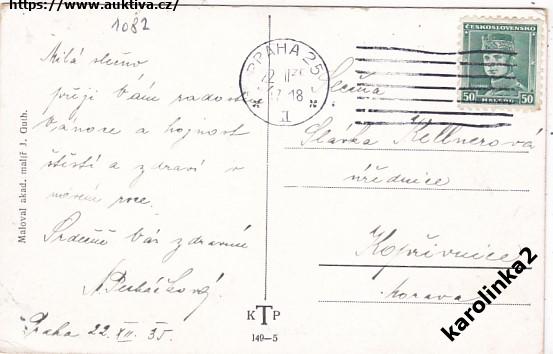 https://www.auktiva.cz/
1082
Milá slečno
přeji Vám radostné
Vánoce a hojnost
štěstí a zdraví v
novém roce.
Srdečně Vás zdraví
Praha 22. XII. 35.
Maloval akad. malíř J. Guth.
PRAHA 25
18
ČESKOSLOVENSKO
50
50
Slečna
Slávka Kellnerová
úřednice
Kopřivnice
Morava
K T P
149-5
karolinka2